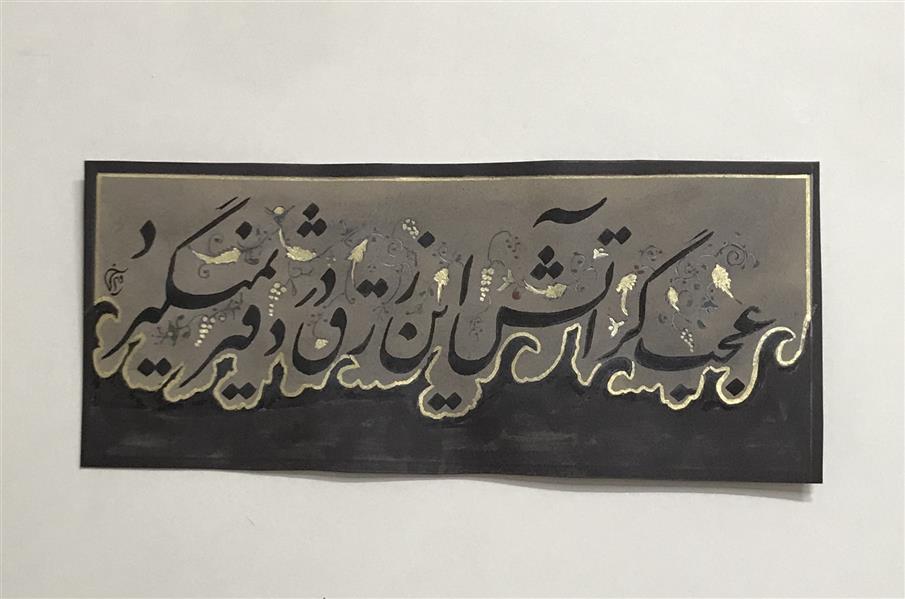 عجب گر آتش این زرق در دفتر نمیگیرد